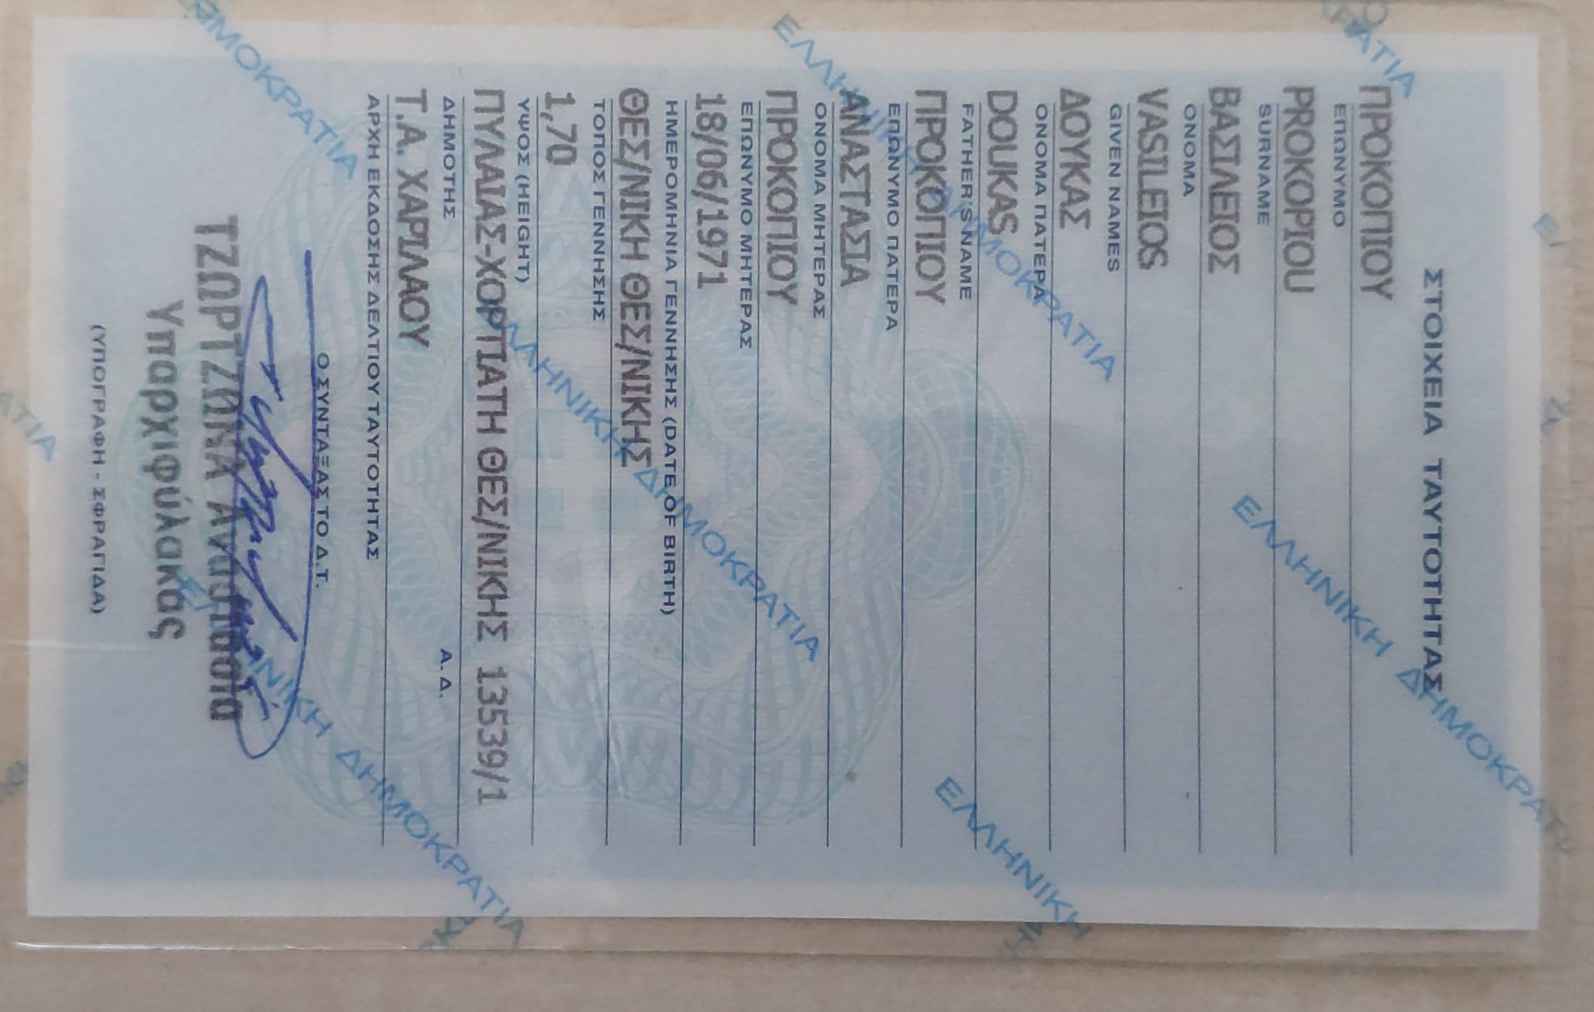 ΣΤΟΙΧΕΙΑ ΤΑΥΤΟΤΗΤΑΣ
ΠΡΟΚΟΠΙΟΥ
ΕΠΩΝΥΜΟ
PROKOPIOU
SURNAME
ΒΑΣΙΛΕΙΟΣ
ΟΝΟΜΑ
VASILEIOS
GIVEN NAMES
ΔΟΥΚΑΣ
ΟΝΟΜΑ ΠΑΤΕΡΑ
DOUKAS
FATHER'S NAME
ΠΡΟΚΟΠΙΟΥ
ΕΠΩΝΥΜΟ ΠΑΤΕΡΑ
ΑΝΑΣΤΑΣΙΑ
ΟΝΟΜΑ ΜΗΤΕΡΑΣ
ΠΡΟΚΟΠΙΟΥ
ΕΠΩΝΥΜΟ ΜΗΤΕΡΑΣ
18/06/1971
ΗΜΕΡΟΜΗΝΙΑ ΓΕΝΝΗΣΗΣ (DATE OF BIRTH)
ΘΕΣ/ΝΙΚΗ ΘΕΣ/ΝΙΚΗΣ
ΤΟΠΟΣ ΓΕΝΝΗΣΗΣ
1,70
ΥΨΟΣ (HEIGHT)
ΠΥΛΑΙΑΣ-ΧΟΡΤΙΑΤΗ ΘΕΣ/ΝΙΚΗΣ 13539/1
ΔΗΜΟΤΗΣ Α.Δ.
Τ.Α. ΧΑΡΙΛΑΟΥ
ΑΡΧΗ ΕΚΔΟΣΗΣ ΔΕΛΤΙΟΥ ΤΑΥΤΟΤΗΤΑΣ
Ο ΣΥΝΤΑΞΑΣ ΤΟ Δ.Τ.
ΤΖΩΡΤΖΩΝΑ Αναστασία
Υπαρχιφύλακας
(ΥΠΟΓΡΑΦΗ - ΣΦΡΑΓΙΔΑ)
ΕΛΛΗΝΙΚΗ ΔΗΜΟΚΡΑΤΙΑ
ΕΛΛΗΝΙΚΗ ΔΗΜΟΚΡΑΤΙΑ
ΕΛΛΗΝΙΚΗ ΔΗΜΟΚΡΑΤΙΑ
ΕΛΛΗΝΙΚΗ ΔΗΜΟΚΡΑΤΙΑ
ΕΛΛΗΝΙΚΗ
ΔΗΜΟΚΡΑΤΙΑ